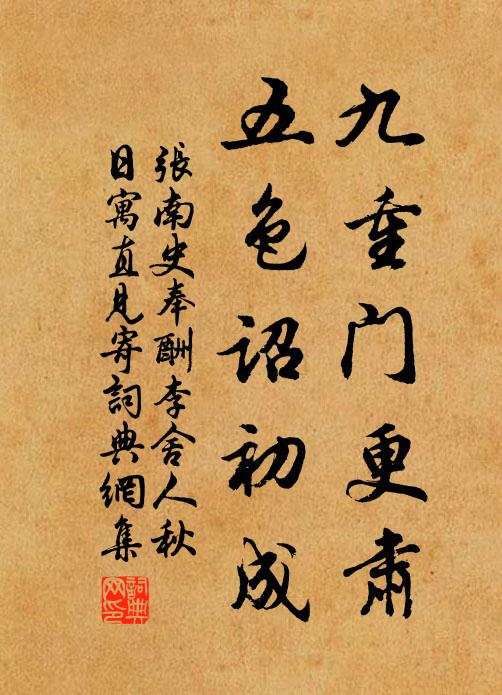 九重门更肃
五色诏初成
張南史奉酬李舍人秋
日寓直見寄詞典網集
詞典
网印